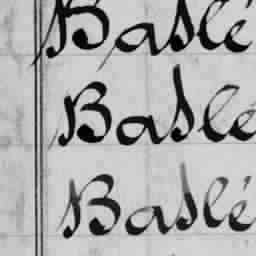 Baslé
Baslé
Baslé